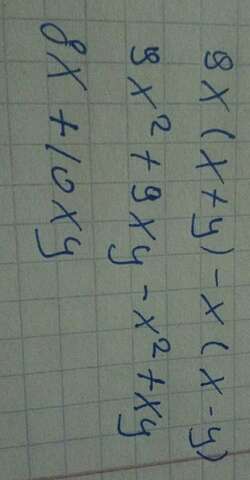 9x(x+y)-x(x-y)
9x²+9xy-x²+xy
8x+10xy